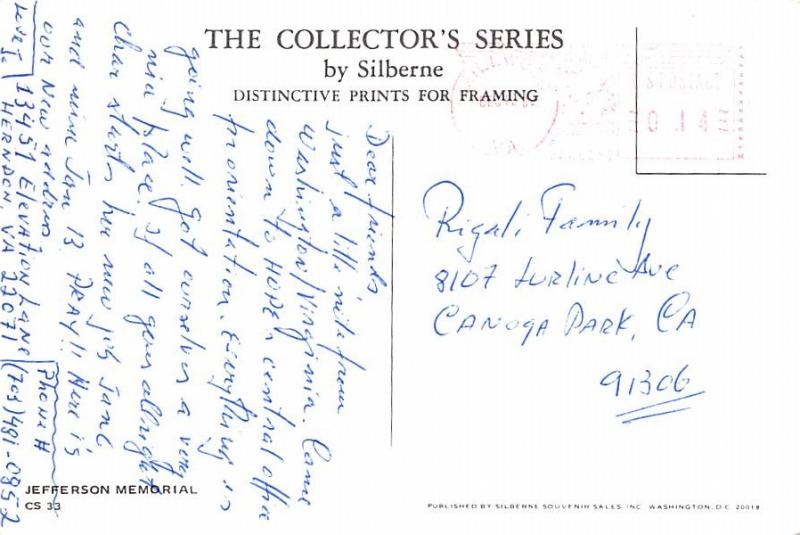 THE COLLECTOR'S SERIES
by Silberne
DISTINCTIVE PRINTS FOR FRAMING
Dear friends
just a little note from
Washington/Virginia. Came
down to HOPE's central office
for orientation. Everything is
going well. Got ourselves a very
nice place. If all goes allright
Char starts her new job Jan 6
and mine Jan 13. PRAY!! Here is
our New address
13451 ELEVATION LANE
HERNDON, VA 22071
Phone #
(703) 481-0852
Rigali Family
8107 LURLINE AVE
CANOGA PARK, CA
91306
JEFFERSON MEMORIAL
CS 33
PUBLISHED BY SILBERNE SOUVENIR SALES, INC. WASHINGTON, D.C. 20018